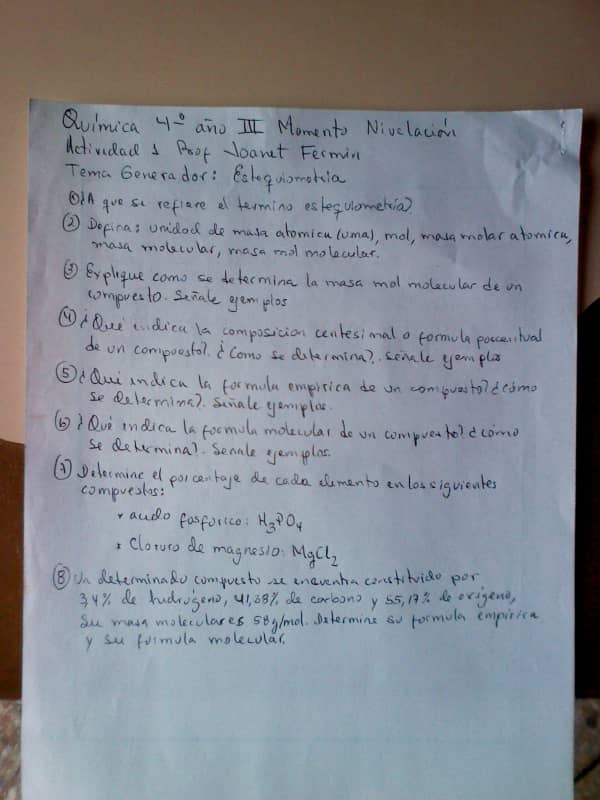 Química 4º año III Momento Nivelación
Actividad 1 Prof Joanet Fermin
Tema Generador: Estequiometria
① ¿A que se refiere el termino estequiometría?
② Defina: unidad de masa atomica (uma), mol, masa molar atomica,
masa molecular, masa mol molecular.
③ Explique como se determina la masa mol molecular de un
compuesto. Señale ejemplos
④ ¿Qué indica la composicion centesimal o formula porcentual
de un compuesto?. ¿Como se determina?. Señale ejemplo
⑤ ¿Qué indica la formula empírica de un compuesto? ¿cómo
se determina?. Señale ejemplos.
⑥ ¿Qué indica la formula molecular de un compuesto? ¿cómo
se determina?. Señale ejemplos.
⑦ Determine el porcentaje de cada elemento en los siguientes
compuestos:
* acido fosforico: H₃PO₄
* Cloruro de magnesio: MgCl₂
⑧ Un determinado compuesto se encuentra constituido por
3,4% de hidrógeno, 41,38% de carbono y 55,17% de oxigeno,
su masa molecular es 58g/mol. Determine su formula empírica
y su formula molecular.